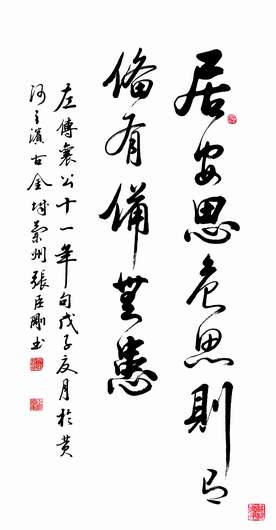 居安思危思則有
俻有備無患
左傳襄公十一年句戊子夏月於黃
河之濱古金城蘭州張臣剛書